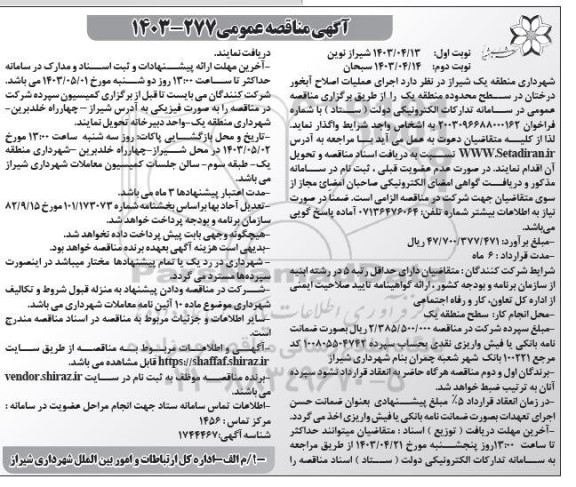 آگهی مناقصه عمومی ۲۷۷-۱۴۰۳
نوبت اول: ۱۴۰۳/۰۴/۱۳ شیراز نوین
نوبت دوم: ۱۴۰۳/۰۴/۱۴ سبحان
شهرداری منطقه یک شیراز در نظر دارد اجرای عملیات اصلاح آبخور
درختان در سطح محدوده منطقه یک را از طریق برگزاری مناقصه
عمومی در سامانه تدارکات الکترونیکی دولت ( ستاد ) با شماره
فراخوان ۲۰۰۳۰۹۶۶۸۸۰۰۰۱۶۲ به اشخاص واجد شرایط واگذار نماید.
لذا از کلیه متقاضیان دعوت به عمل می آید با مراجعه به آدرس
WWW.Setadiran.ir نسبت به دریافت اسناد مناقصه و تحویل
آن اقدام نمایند. در صورت عدم عضویت قبلی ، ثبت نام در سامانه
مذکور و دریافت گواهی امضای الکترونیکی صاحبان امضای مجاز از
سوی متقاضیان جهت شرکت در مناقصه الزامی است. ضمناً در صورت
نیاز به اطلاعات بیشتر شماره تلفن: ۰۷۱۳۶۴۷۶۰۶۴ آماده پاسخ گویی
می‌باشد.
-مبلغ برآورد: ۴۷/۷۰۰/۳۷۷/۴۷۱ ریال
-مدت قرارداد : ۶ ماه
شرایط شرکت کنندگان : متقاضیان دارای حداقل رتبه ۵ در رشته ابنیه
از سازمان برنامه و بودجه کشور ، ارائه گواهینامه تایید صلاحیت ایمنی
از اداره کل تعاون، کار و رفاه اجتماعی
-محل انجام کار: سطح منطقه یک
-مبلغ سپرده شرکت در مناقصه ۲/۳۸۵/۵۰۰/۰۰۰ ریال بصورت ضمانت
نامه بانکی یا فیش واریزی نقدی بحساب سپرده ۱۰۰۸۰۵۵۰۴۷۴۲ کد
مرجع ۱۰۰۲۲۱ بانک شهر شعبه چمران بنام شهرداری شیراز
-برندگان اول و دوم مناقصه هرگاه حاضر به انعقاد قرارداد نشود سپرده
آنان به ترتیب ضبط خواهد شد.
-در زمان انعقاد قرارداد ۵٪ مبلغ پیشنهادی بعنوان ضمانت حسن
اجرای تعهدات بصورت ضمانت نامه بانکی یا فیش واریزی اخذ می گردد.
-آخرین مهلت دریافت ( توزیع ) اسناد : متقاضیان میتوانند حداکثر
تا ساعت ۱۳:۰۰ روز پنجشنبه مورخ ۱۴۰۳/۰۴/۲۱ از طریق مراجعه
به سامانه تدارکات الکترونیکی دولت ( ستاد ) اسناد مناقصه را
دریافت نمایند.
-آخرین مهلت ارائه پیشنهادات و ثبت اسناد و مدارک در سامانه
حداکثر تا ساعت ۱۳:۰۰ روز دو شنبه مورخ ۱۴۰۳/۰۵/۰۱ می باشد.
شرکت کنندگان می بایست تا قبل از برگزاری کمیسیون سپرده شرکت
در مناقصه را به صورت فیزیکی به آدرس شیراز - چهارراه خلدبرین-
شهرداری منطقه یک-واحد دبیرخانه تحویل نمایند.
-تاریخ و محل بازگشایی پاکات: روز سه شنبه ساعت ۱۳:۰۰ مورخ
۱۴۰۳/۰۵/۰۲ در محل شیراز-چهارراه خلدبرین -شهرداری منطقه
یک- طبقه سوم- سالن جلسات کمیسیون معاملات شهرداری شیراز
می باشد.
-مدت اعتبار پیشنهادها ۳ ماه می باشد.
-تعدیل آحاد بها بر اساس بخشنامه شماره ۱۰۱/۱۷۳۰۷۳ مورخ ۸۲/۹/۱۵
سازمان برنامه و بودجه پرداخت خواهد شد.
-هیچگونه وجهی بابت پیش پرداخت داده نخواهد شد.
-بدیهی است هزینه آگهی بعهده برنده مناقصه خواهد بود.
- شهرداری در رد یک یا تمام پیشنهادها مختار میباشد در اینصورت
سپرده‌ها مسترد می گردد.
-شرکت در مناقصه ودادن پیشنهاد به منزله قبول شروط و تکالیف
شهرداری موضوع ماده ۱۰ آئین نامه معاملات شهرداری می باشد.
-سایر اطلاعات و جزئیات مربوط به مناقصه در اسناد مناقصه مندرج
است.
-آگهی و اطلاعات مربوط به مناقصه از طریق سایت
https://shaffaf.shiraz.ir قابل مشاهده می باشد.
-برنده مناقصه موظف به ثبت نام در سایت vendor.shiraz.ir
می باشند.
-اطلاعات تماس سامانه ستاد جهت انجام مراحل عضویت در سامانه :
مرکز تماس : ۱۴۵۶
شناسه آگهی: ۱۷۴۴۴۶۷
-۹/م الف-اداره کل ارتباطات و امور بین الملل شهرداری شیراز